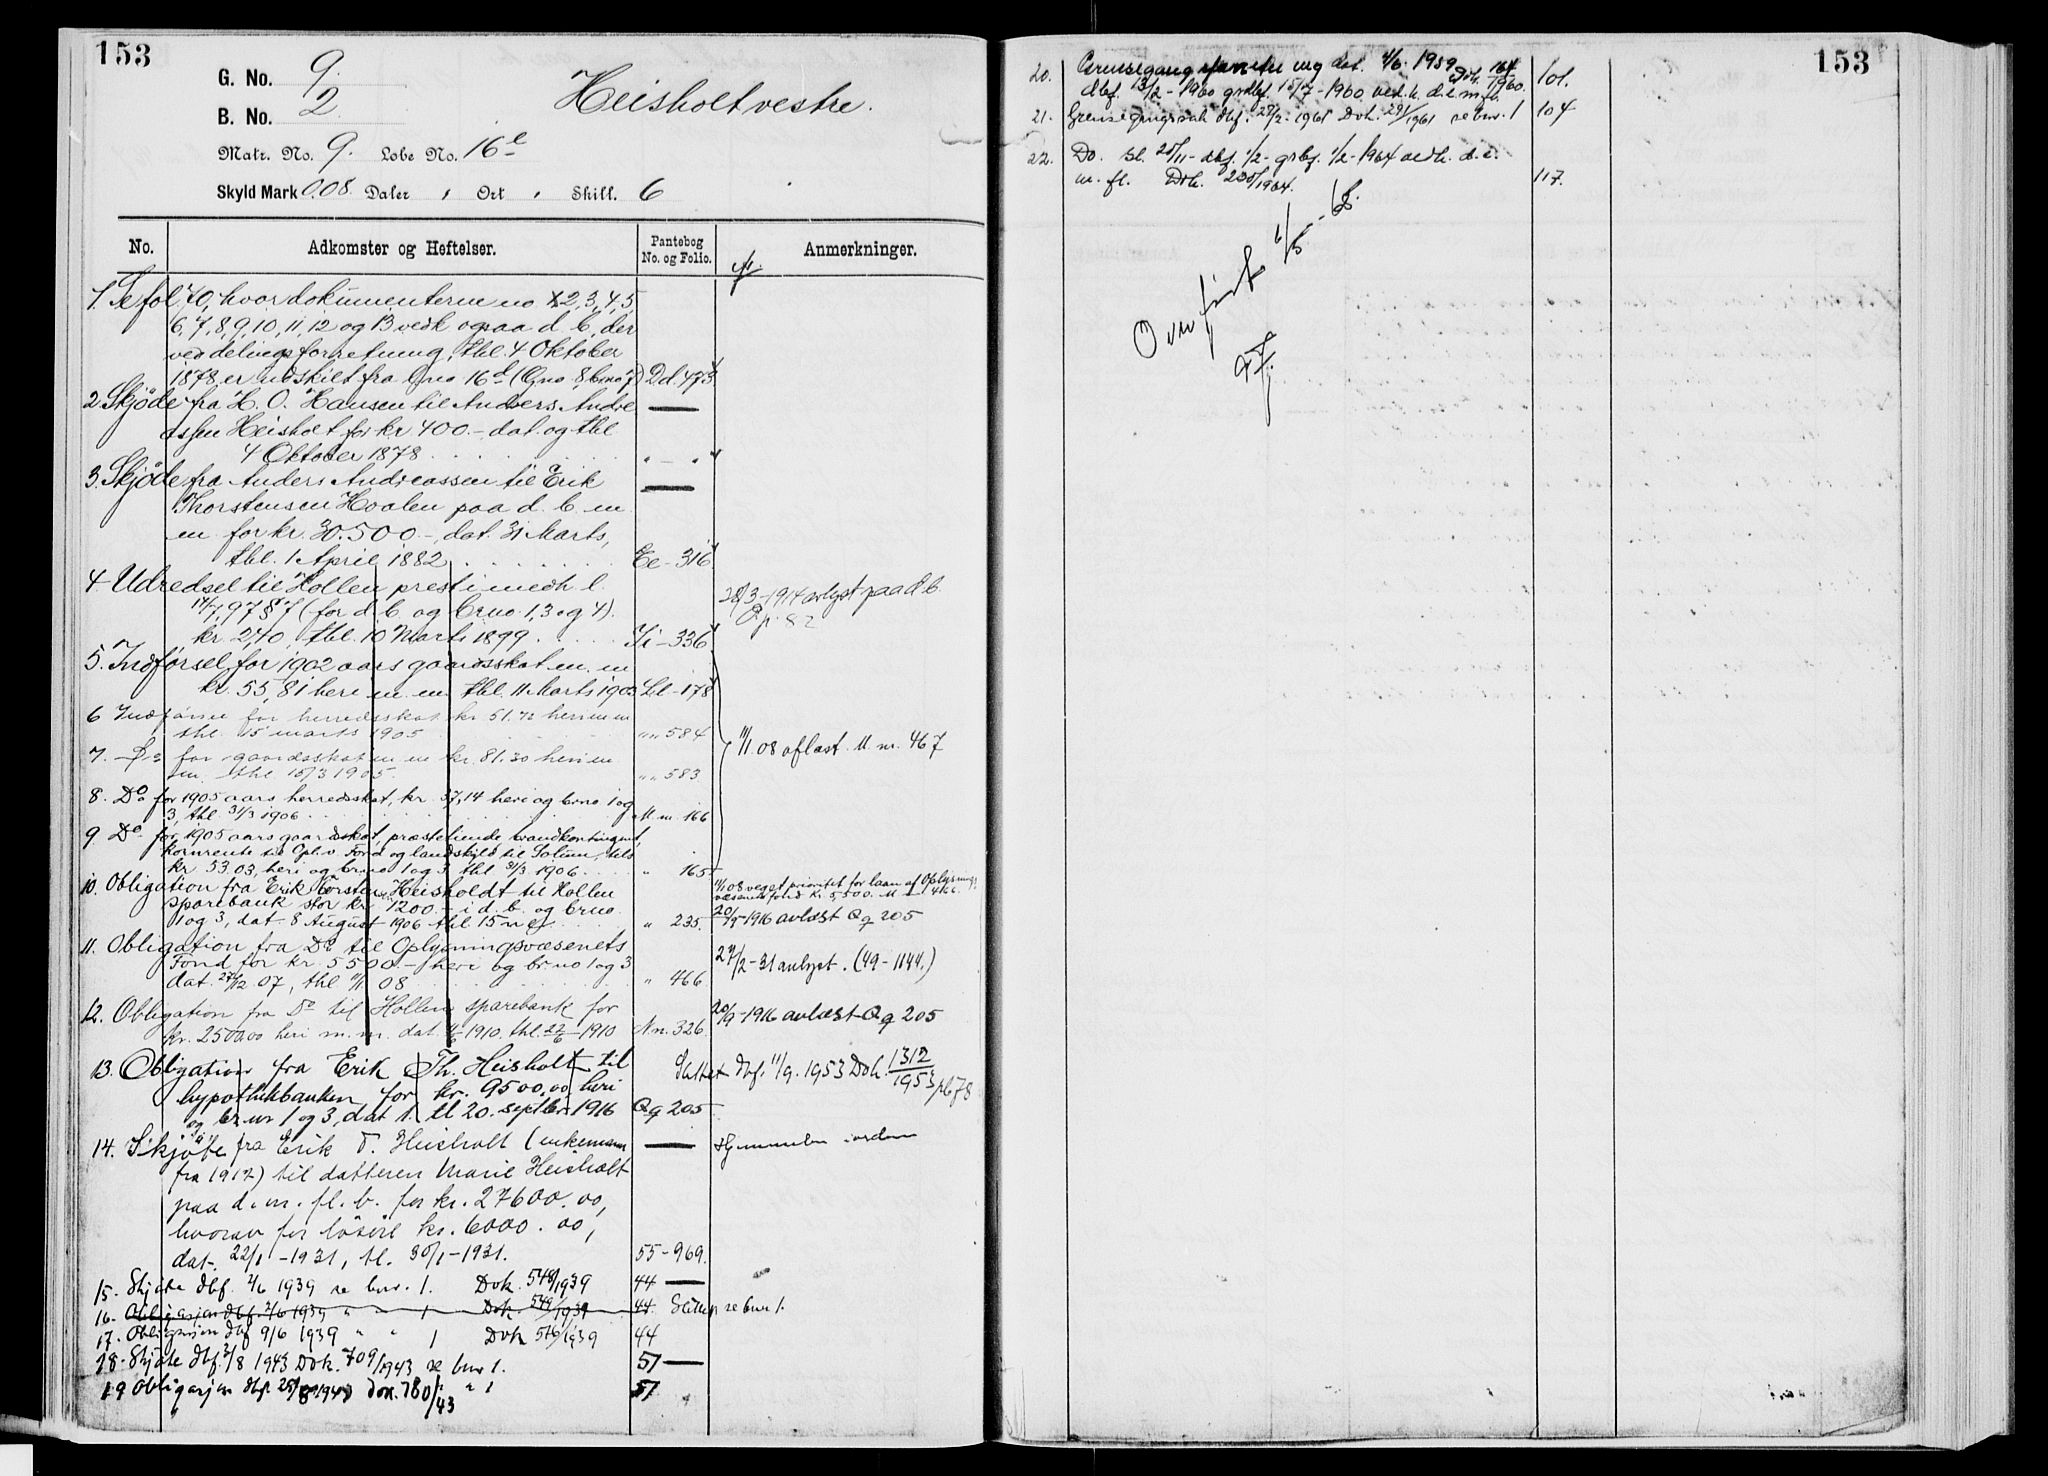 153
G. No. 9.
B. No. 2
Heisholt vestre.
Matr. No. 9. Løbe No. 16e
Skyld Mark 0.08. Daler , Ort , Skill. 6
No. Adkomster og Heftelser. Pantebog No. og Folio. Anmerkninger.
1. Se fol. 70, hvor dokumenterne no 2, 3, 4, 5,
6, 7, 8, 9, 10, 11, 12 og 13 vedk ogsaa d. b, der
ved delingsforretning, thl. 4 Oktober
1878 er udskilt fra Lno 16d (Gno 8, brno 7) Dd. 473
2. Skjøde fra H. O. Hansen til Anders Andre
assen Heisholt for kr 400.–, dat. og thl
4 Oktober 1878 " – "
3. Skjøde fra Anders Andreassen til Erik
Thorstensen Hvalen paa d. b. m
m for kr. 30.500.–, dat. 31 Marts,
thl. 1 April 1882 Ee – 316
4. Udredsel til Hollen prest i medh. l.
14/7, 97 § 7 (for d. b. og brno. 1, 3 og 4). 28/3–1914 avlyst paa d. b.
kr. 2,40, thl. 10 Marts 1899. Ii – 336 Pp. 82
5. Indførsel for 1902 aars gaardsskat m. m
kr. 55,81 heri m. m. thl. 11 Marts 1903 Ll – 178
6 Indførsel for herredsskat kr. 51.72 heri m m
thl. 15 marts 1905 " " 584
7. Do for gaardsskat m m kr. 81.30 heri m
m. thl 15/3 1905. " " 583
11/1.08 aflæst. M. m. 467
8. Do for 1905 aars herredsskat, kr. 37,14 heri og brno 1 og
3, thl. 31/3 1906 M m. 166
9 Do for 1905 aars gaardsskat, præstetiende brandkontingent,
kornrente til Opl. v. Fond og landskyld til Solum, tils
kr. 53.03, heri og brno 1 og 3 thl 31/3 1906 " 165
10. Obligation fra Erik Thorsten. Heisholdt til Hollen
sparebank stor kr. 1200.– i d. b. og brno
1 og 3, dat. 8 August 1906 thl 15 n e " 235.
11/1 08 veget prioritet for laan af Oplysnings
væsenets fond kr. 5,500. M
20/9–1916 avlæst Qq 205
11. Obligation fra Do til Oplysningsvæsenets
Fond for kr. 5500.– heri og brno 1 og 3
dat. 27/12 07, thl 11/1 08 " 466
27/2–31 avlyst. (49–1144.)
12. Obligation fra Do til Hollen sparebank for
kr. 2500.00 heri m. m. dat 1910. thl. 22/6–1910 Nn. 326.
20/9–1916 avlæst Qq 205
13. Obligation fra Erik Th. Heisholt til
hypothekbanken for kr. 9500,00 heri
og br. nr 1 og 3, dat tl 20. septbr. 1916 Qq 205
Slettet dbf. 11/9. 1953 Dok. 1312/1953 pb 78
14. Skjøte fra Erik T. Heisholt (enkemann
fra 1912) til datteren Marie Heisholt
paa d. m. fl. b. for kr. 27600.00,
hvorav for løsøre kr. 6000.00,
dat. 22/1–1931, tl. 30/1–1931. 55–969.
Hjemmelen i orden
15. Skjøte dbf. 2/6 1939 se bnr. 1. Dok. 548/1939 44
16. Obligasjon dbf. 2/6 1939 " " 1 Dok. 549/1939 44. Slettet se bnr 1.
17. Obligasjon dbf 9/6 1939 " " 1 Dok 576/1939 44
18. Skjøte dbf. 2/8 1943 Dok. 709/1943 se bnr 1. 51
19 Obligasjon dbf. 25/8 1943 Dok. 780/43 " " 1 51
153
20. Grensegang ing dat. 4/6. 1959
dbf. 13/2–1960 grdbf. 15/7–1960 vedk. d. e. m. fl. Dok. 164/1960. 101.
21. Grensegangssak dbf. 27/2–1961 Dok. 291/1961 se bnr. 1 104
22. Do. sl. 25/11– dbf. 1/2– grbf. 1/2–1964 vedk. d. e.
m. fl. Dok. 230/1964. 117.
Overført